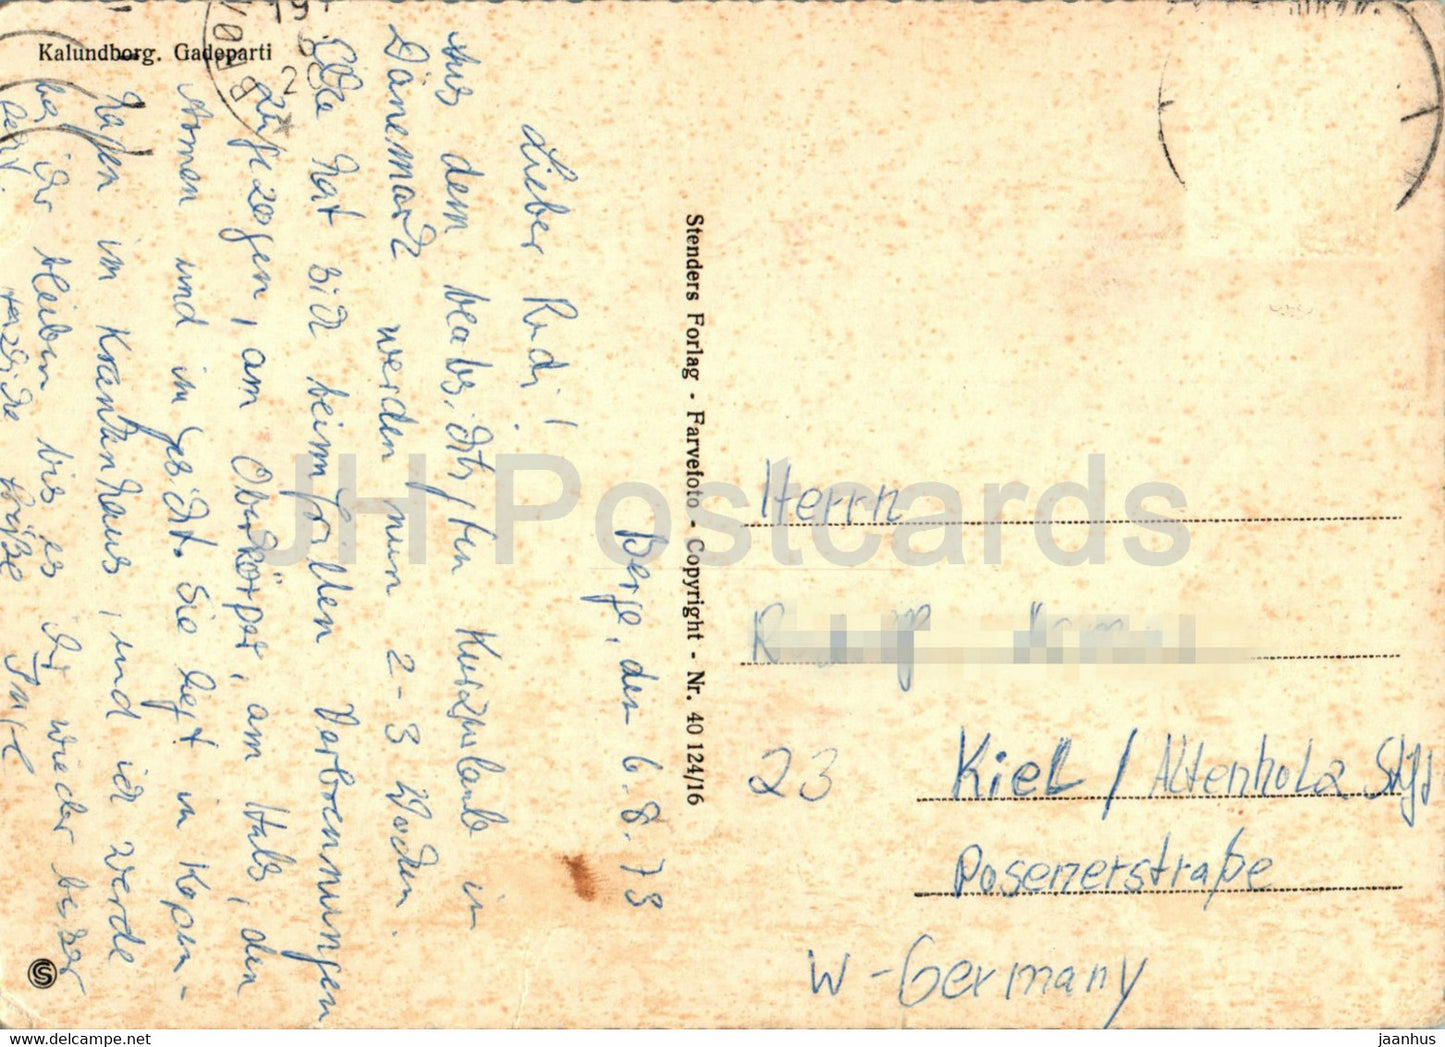 Kalundborg. Gadeparti
Berge, den 6.8.79
Lieber Rudi!
Aus dem beabsichtigten Kurzurlaub in
Dänemark werden nun 2-3 Wochen.
Elke hat sich beim Verbrennungen
zugezogen, am Oberkörper, am Hals, den
Armen und im Gesicht. Sie liegt in Kopen-
hagen im Krankenhaus, und ich werde
bei ihr bleiben bis es ihr wieder besser
geht. Herzliche Grüße
Stenders Forlag - Farvefoto - Copyright - Nr. 40 124/16
Herrn
23 Kiel / Altenholz Stift
Posenerstraße
W-Germany
JH Postcards
jaanhus